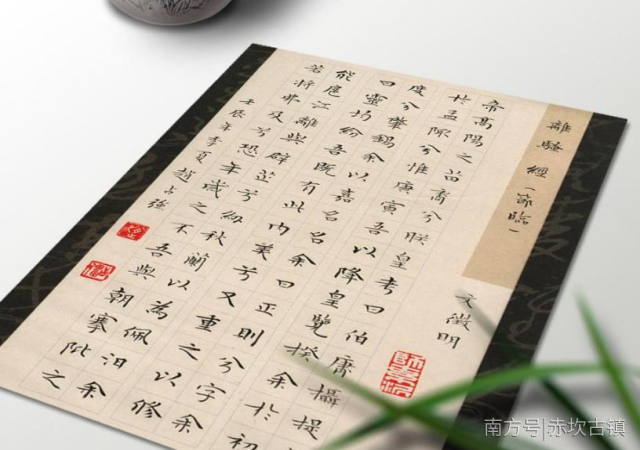 離騷經(節臨)
文徵明
帝高陽之苗裔兮朕皇考曰伯庸攝提
於孟陬兮惟庚寅吾以降皇覽揆余於初
度兮肇錫余以嘉名名余曰正則兮字余
曰靈均紛吾既有此內美兮又重之以修
能扈江離與辟芷兮紉秋蘭以為佩汩余
若將弗及兮恐年歲之不吾與朝搴阰之
壬辰年季夏趙占強
南方号|赤坎古镇